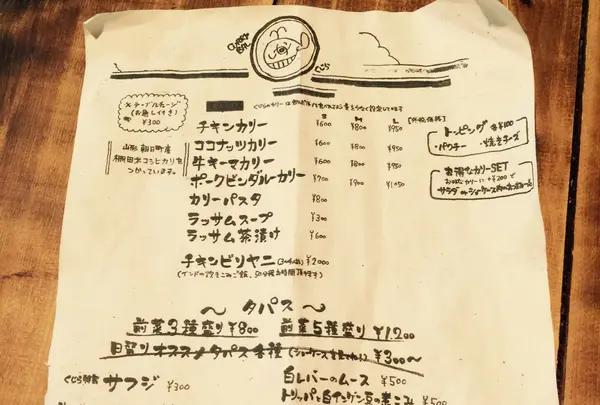 CURRY BAR
くじら
※テーブルチャージ
(お通し付き)
¥300
山形 朝日町産
棚田米コシヒカリを
つかっています。
S M L [外税価格]
チキンカリー ¥600 ¥800 ¥950
ココナッツカリー ¥600 ¥800 ¥950
牛キーマカリー ¥600 ¥800 ¥950
ポークビンダルーカリー ¥700 ¥900 ¥1050
カリーパスタ ¥800
ラッサムスープ ¥300
ラッサム茶漬け ¥600
チキンビリヤニ ¥2000
(インドの炊きこみご飯、50分程お時間頂きます)
トッピング 各¥100
・パクチー ・焼きチーズ
お得なカリーSET
お好きなカリーに +¥200で
サラダ
〜 タパス 〜
前菜3種盛り ¥800 前菜5種盛り ¥1,200
日替り オススメタパス各種 ¥300〜
くじら特製 サフジ ¥300
白レバーのムース ¥500
トリッパと白インゲン豆の煮こみ ¥500